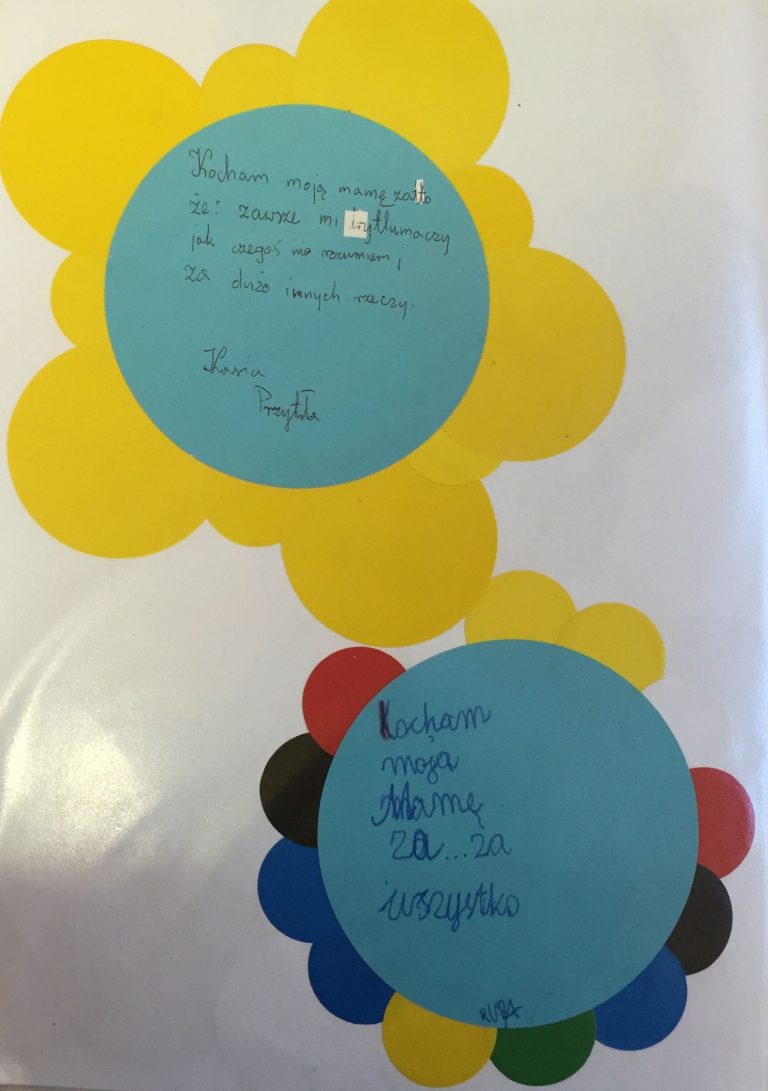 Kocham moją mamę zato
że: zawsze mi wytłumaczy
jak czegoś nie rozumiem i
za dużo innych rzeczy.
Kasia
Kocham
moja
Mamę
za...za
wszystko